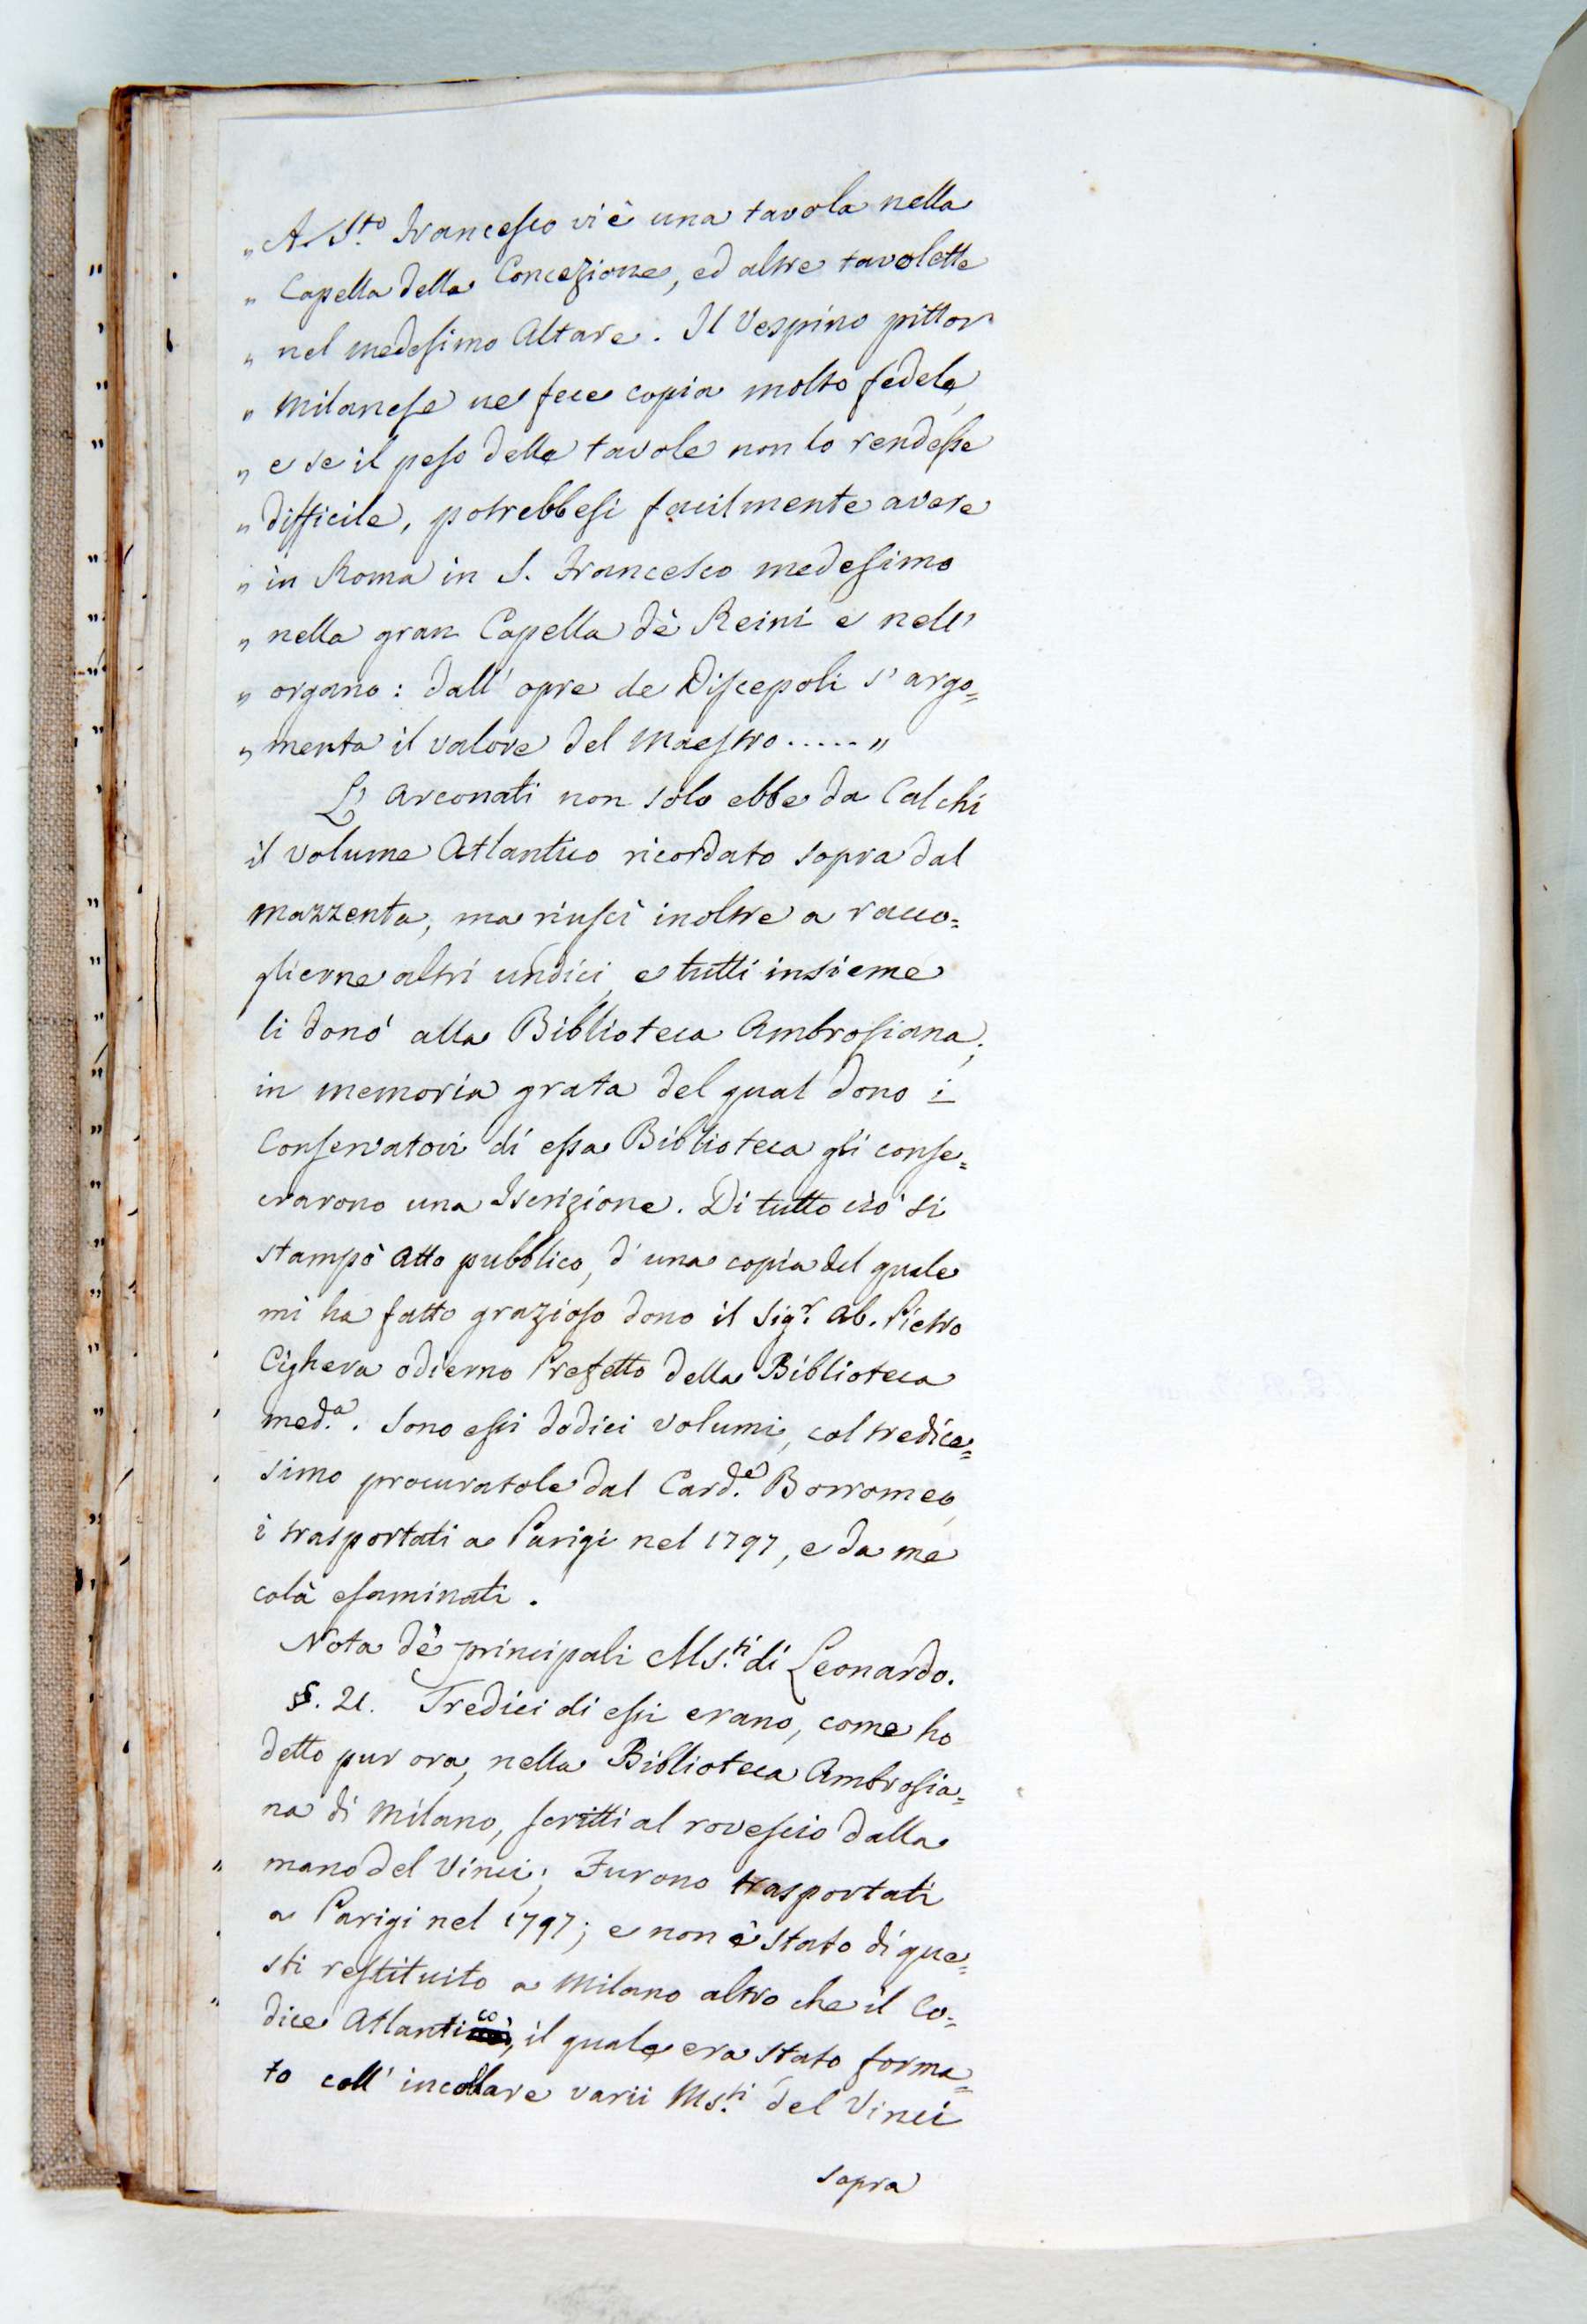 „ A S.to Francesco vi è una tavola nella
„ Capella della Concezione, ed altre tavolette
„ nel medesimo Altare. Il Vespino pittor
„ Milanese ne fece copia molto fedele,
„ e se il peso delle tavole non lo rendesse
„ difficile, potrebbesi facilmente avere
„ in Roma in S. Francesco medesimo
„ nella gran Capella dè Reini e nell'
„ organo: dall' opre de Discepoli s' argo=
„ menta il valore del Maestro ..... „
L' Arconati non solo ebbe da Calchi
il volume Atlantico ricordato sopra dal
Mazzenta, ma riuscì inoltre a racco=
glierne altri undici, e tutti insieme
li donò alla Biblioteca Ambrosiana;
in memoria grata del qual dono i
Conservatori di essa Biblioteca gli conse=
crarono una Iscrizione. Di tutto ciò si
stampò Atto pubblico, d' una copia del quale
mi ha fatto grazioso dono il Sig.r Ab. Pietro
Cighera odierno Prefetto della Biblioteca
med.a. Sono essi dodici volumi, col tredice=
simo procuratole dal Card.e Borromeo,
i trasportati a Parigi nel 1797, e da me
colà esaminati.
Nota dè principali Ms.ti di Leonardo.
§. 21. Tredici di essi erano, come ho
detto pur ora, nella Biblioteca Ambrosia=
na di Milano, scritti al rovescio dalla
mano del Vinci; Furono trasportati
a Parigi nel 1797; e non è stato di que=
sti restituito a Milano altro che il Co=
dice Atlantico, il quale era stato forma=
to coll' incollare varii Ms.ti del Vinci
sopra